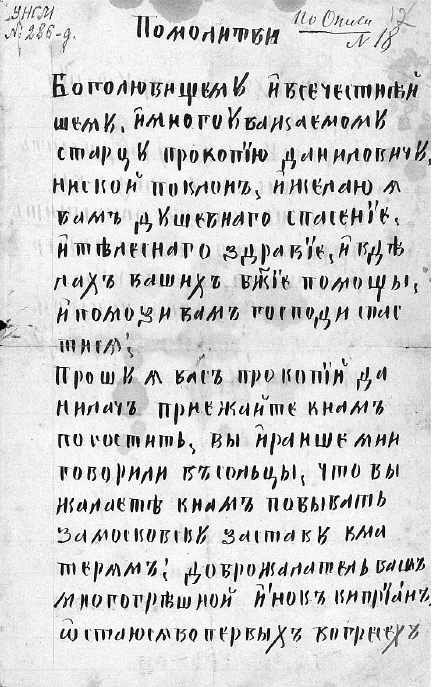 УНКМ
№ 286-д.
По Описи 12
N 18
Помолитвы
Боголюбишему ивсечестнѣй
шему, имногоуважаемому
старцу прокопїю даниловичу,
ниской поклонъ, ижелаю я
вамъ душевнаго спасенїе,
итѣлеснаго здравїе, ивдѣ
лахъ вашихъ бж҃їе помощы,
ипомози вамъ господи спас
тися;
Прошу я васъ прокопїй да
нилачъ приежайте кнамъ
погостить, вы иранше мни
говорили въсольцы, что вы
жалаетѣ кнамъ побывать
замосковску заставу кма
терямъ; доброжалатель вашъ
многогрѣшной инокъ кипрїанъ,
ѿстаюся вопервыхъ вогресехъ